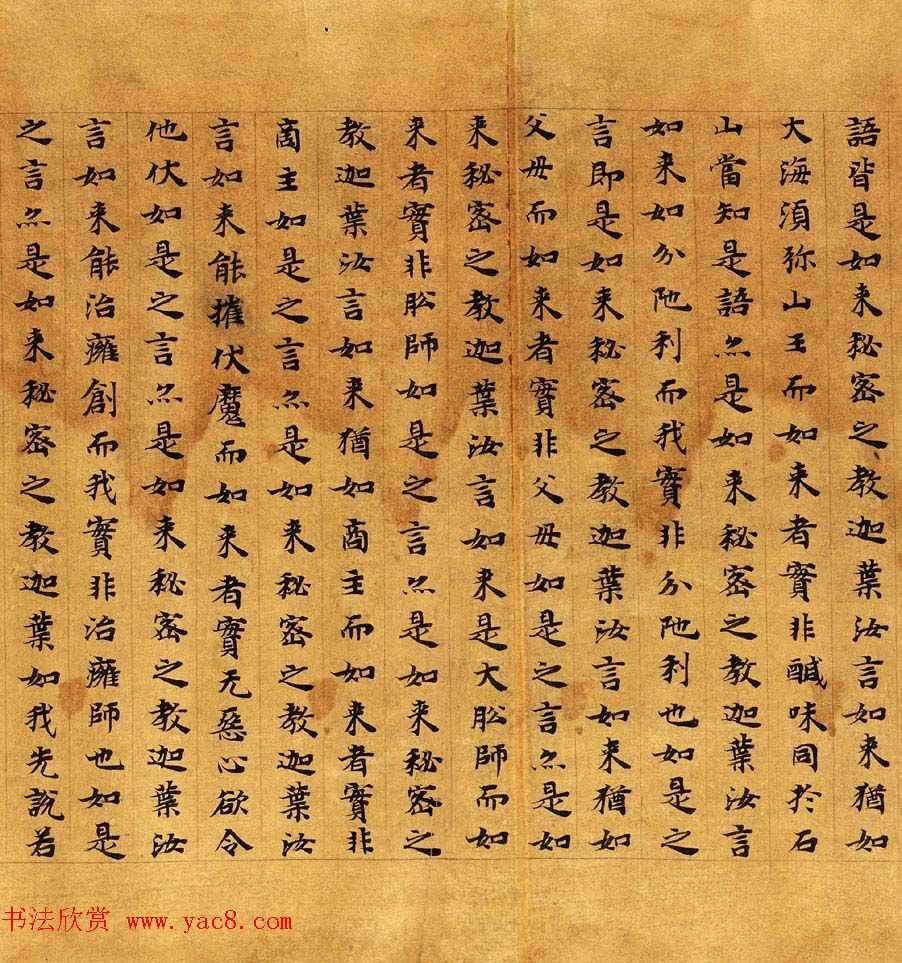 語皆是如来秘密之教迦葉汝言如来猶如
大海湏弥山王而如来者實非醎味同於石
山當知是語亦是如来秘密之教迦葉汝言
如来如分陁利而我實非分陁利也如是之
言即是如来秘密之教迦葉汝言如来猶如
父母而如来者實非父母如是之言亦是如
来秘密之教迦葉汝言如来是大舩師而如
来者實非舩師如是之言亦是如来秘密之
教迦葉汝言如来猶如商主而如来者實非
商主如是之言亦是如来秘密之教迦葉汝
言如来能摧伏魔而如来者實无惡心欲令
他伏如是之言亦是如来秘密之教迦葉汝
言如来能治癰創而我實非治癰師也如是
之言亦是如来秘密之教迦葉如我先說若
书法欣赏 www.yac8.com